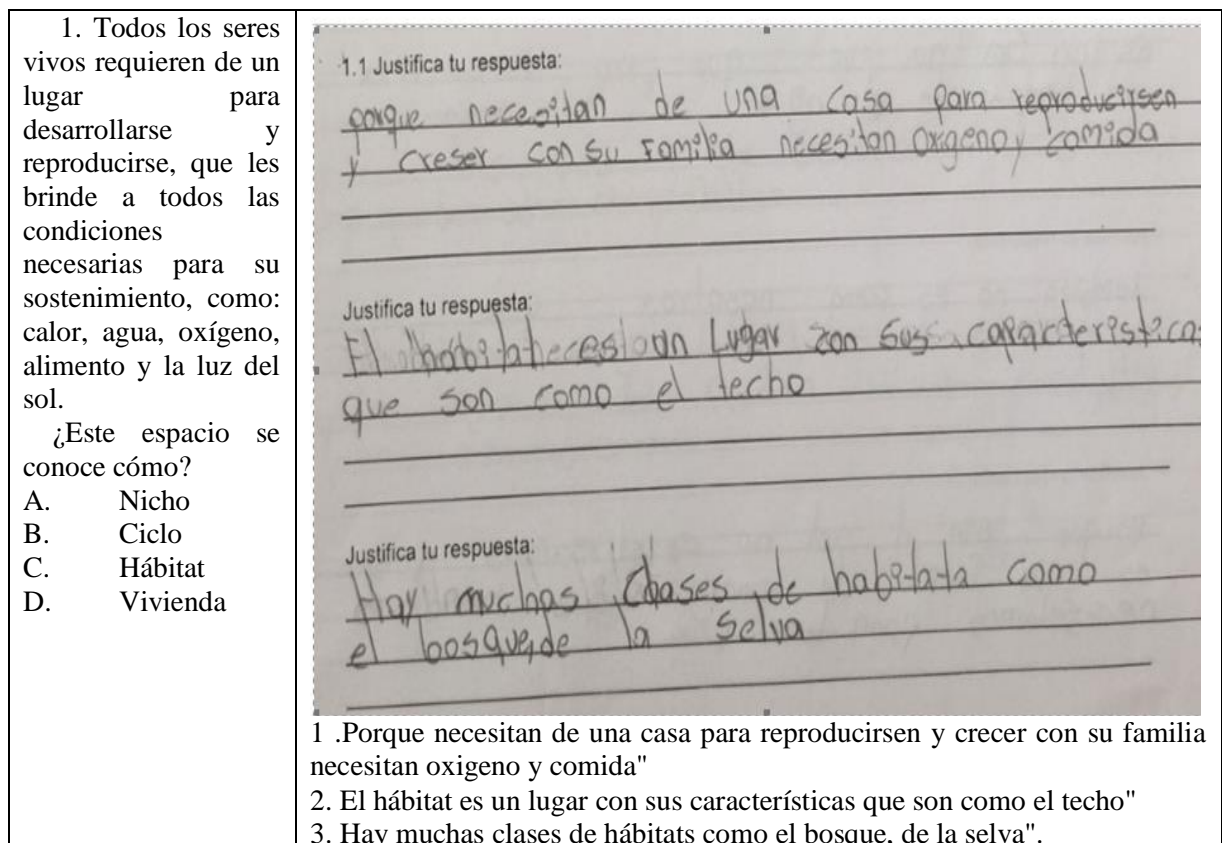 1. Todos los seres
vivos requieren de un
lugar para
desarrollarse y
reproducirse, que les
brinde a todos las
condiciones
necesarias para su
sostenimiento, como:
calor, agua, oxígeno,
alimento y la luz del
sol.
¿Este espacio se
conoce cómo?
A. Nicho
B. Ciclo
C. Hábitat
D. Vivienda
1.1 Justifica tu respuesta:
porque necesitan de una casa para reproducirsen
y creser con su familia necesitan oxigeno y comida
Justifica tu respuesta:
El habitat es un lugar con sus caracteristicas
que son como el techo
Justifica tu respuesta:
Hay muchas clases de habitata como
el bosque, de la selva
1 .Porque necesitan de una casa para reproducirsen y crecer con su familia
necesitan oxigeno y comida"
2. El hábitat es un lugar con sus características que son como el techo"
3. Hay muchas clases de hábitats como el bosque, de la selva".